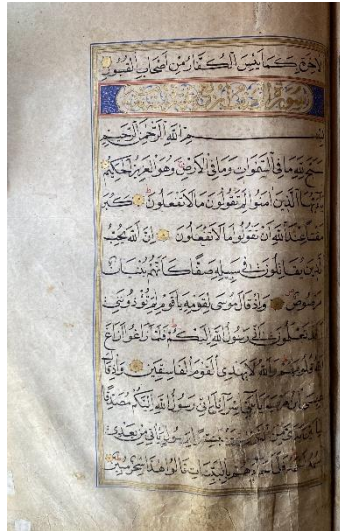 الاخرة كما يئس الكفار من اصحاب القبور
سورة
بسم الله الرحمن الرحيم
سبح لله ما في السموات وما في الارض وهو العزيز الحكيم
يا ايها الذين امنوا لم تقولون ما لا تفعلون كبر
مقتا عند الله ان تقولوا ما لا تفعلون ان الله يحب
الذين يقاتلون في سبيله صفا كانهم بنيان
مرصوص واذ قال موسى لقومه يا قوم لم تؤذونني
وقد تعلمون اني رسول الله اليكم فلما زاغوا ازاغ
الله قلوبهم والله لا يهدي القوم الفاسقين واذ قال
عيسى ابن مريم يا بني اسرائيل اني رسول الله اليكم مصدقا
لما بين يدي من التورية ومبشرا برسول ياتي من بعدي
اسمه احمد فلما جاءهم بالبينات قالوا هذا سحر مبين